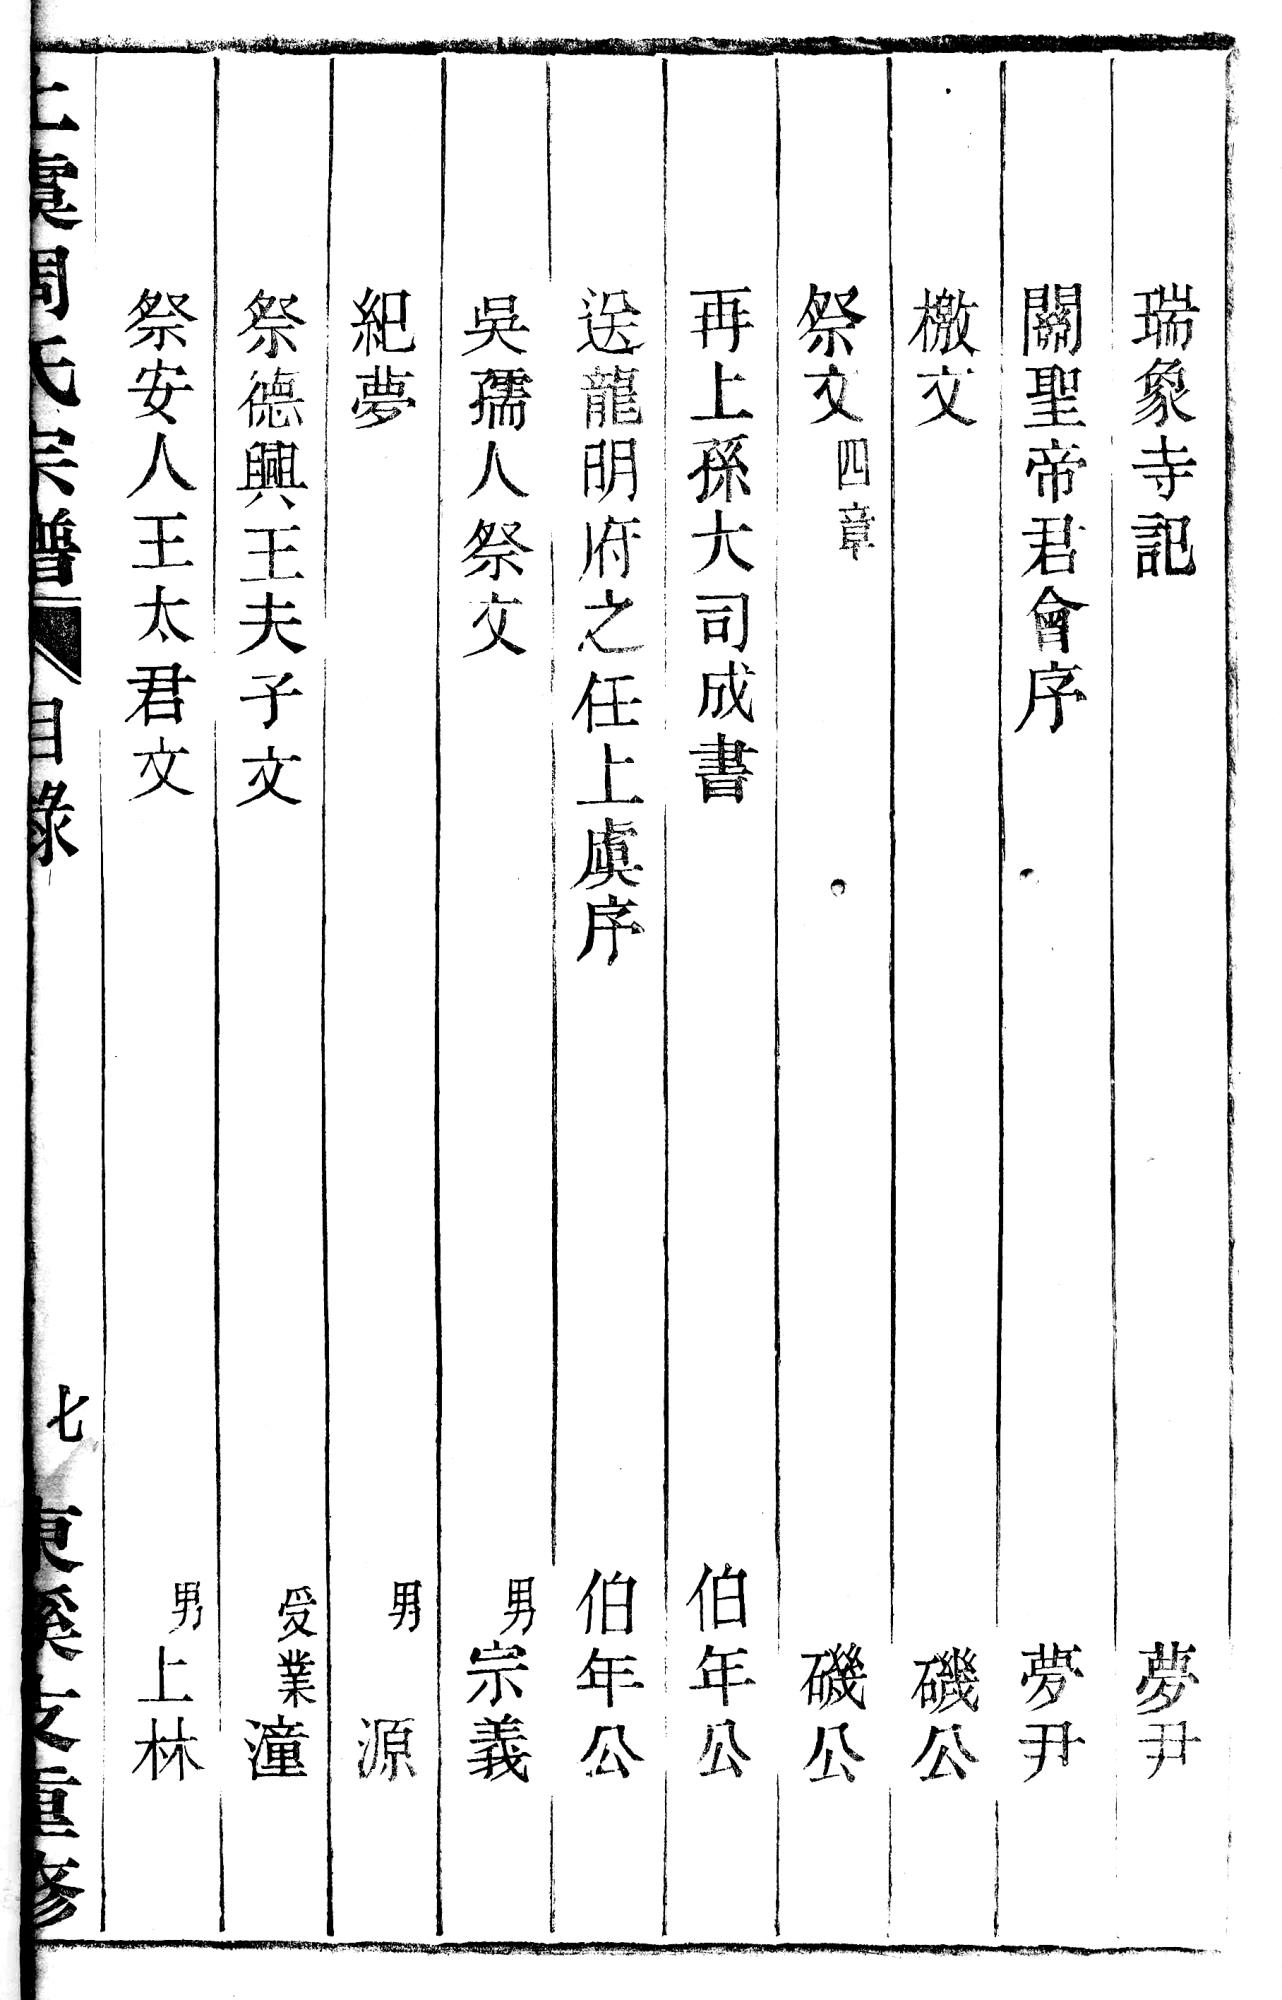 瑞象寺記 夢尹
關聖帝君會序 夢尹
檄文 磯公
祭文四章 磯公
再上孫大司成書 伯年公
送龍明府之任上虞序 伯年公
吳孺人祭文 男宗義
紀夢 男源
祭德興王夫子文 受業潼
祭安人王太君文 男上林
上虞周氏宗譜 目錄 七 東溪支重修